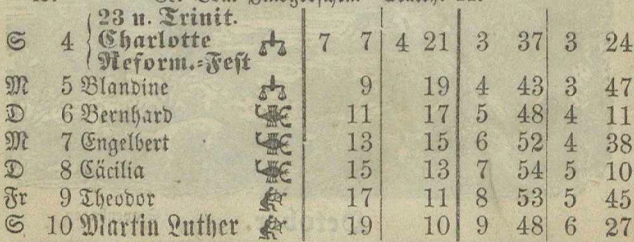 23 n. Trinit.
S 4 Charlotte 7 7 4 21 3 37 3 24
Reform.-Fest
M 5 Blandine 9 19 4 43 3 47
D 6 Bernhard 11 17 5 48 4 11
M 7 Engelbert 13 15 6 52 4 38
D 8 Cäcilia 15 13 7 54 5 10
Fr 9 Theodor 17 11 8 53 5 45
S 10 Martin Luther 19 10 9 48 6 27